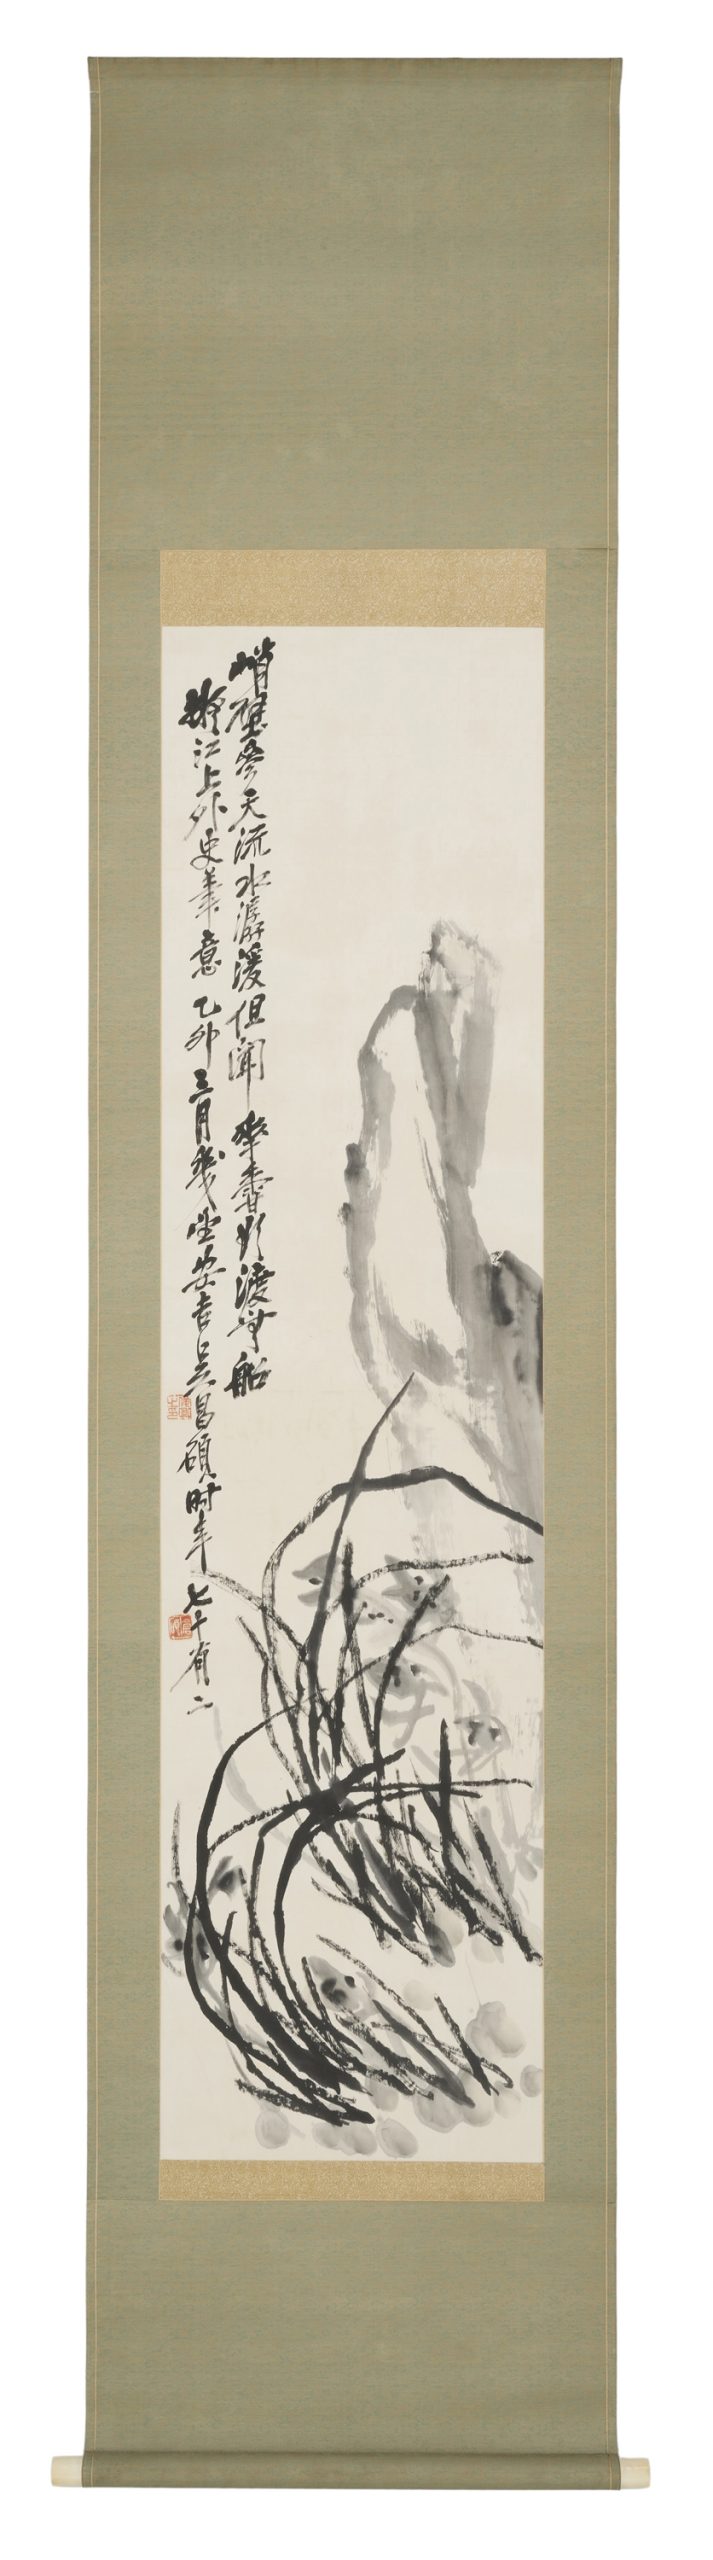 峭壁參天流水潺湲但聞華香欲渡無船
擬江上外史筆意乙卯三月幾望安吉吳昌碩时年七十有二